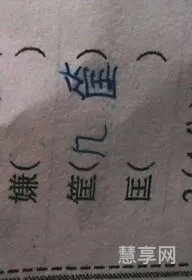 嫌( )
筐(几筐)
匡( )
慧享网